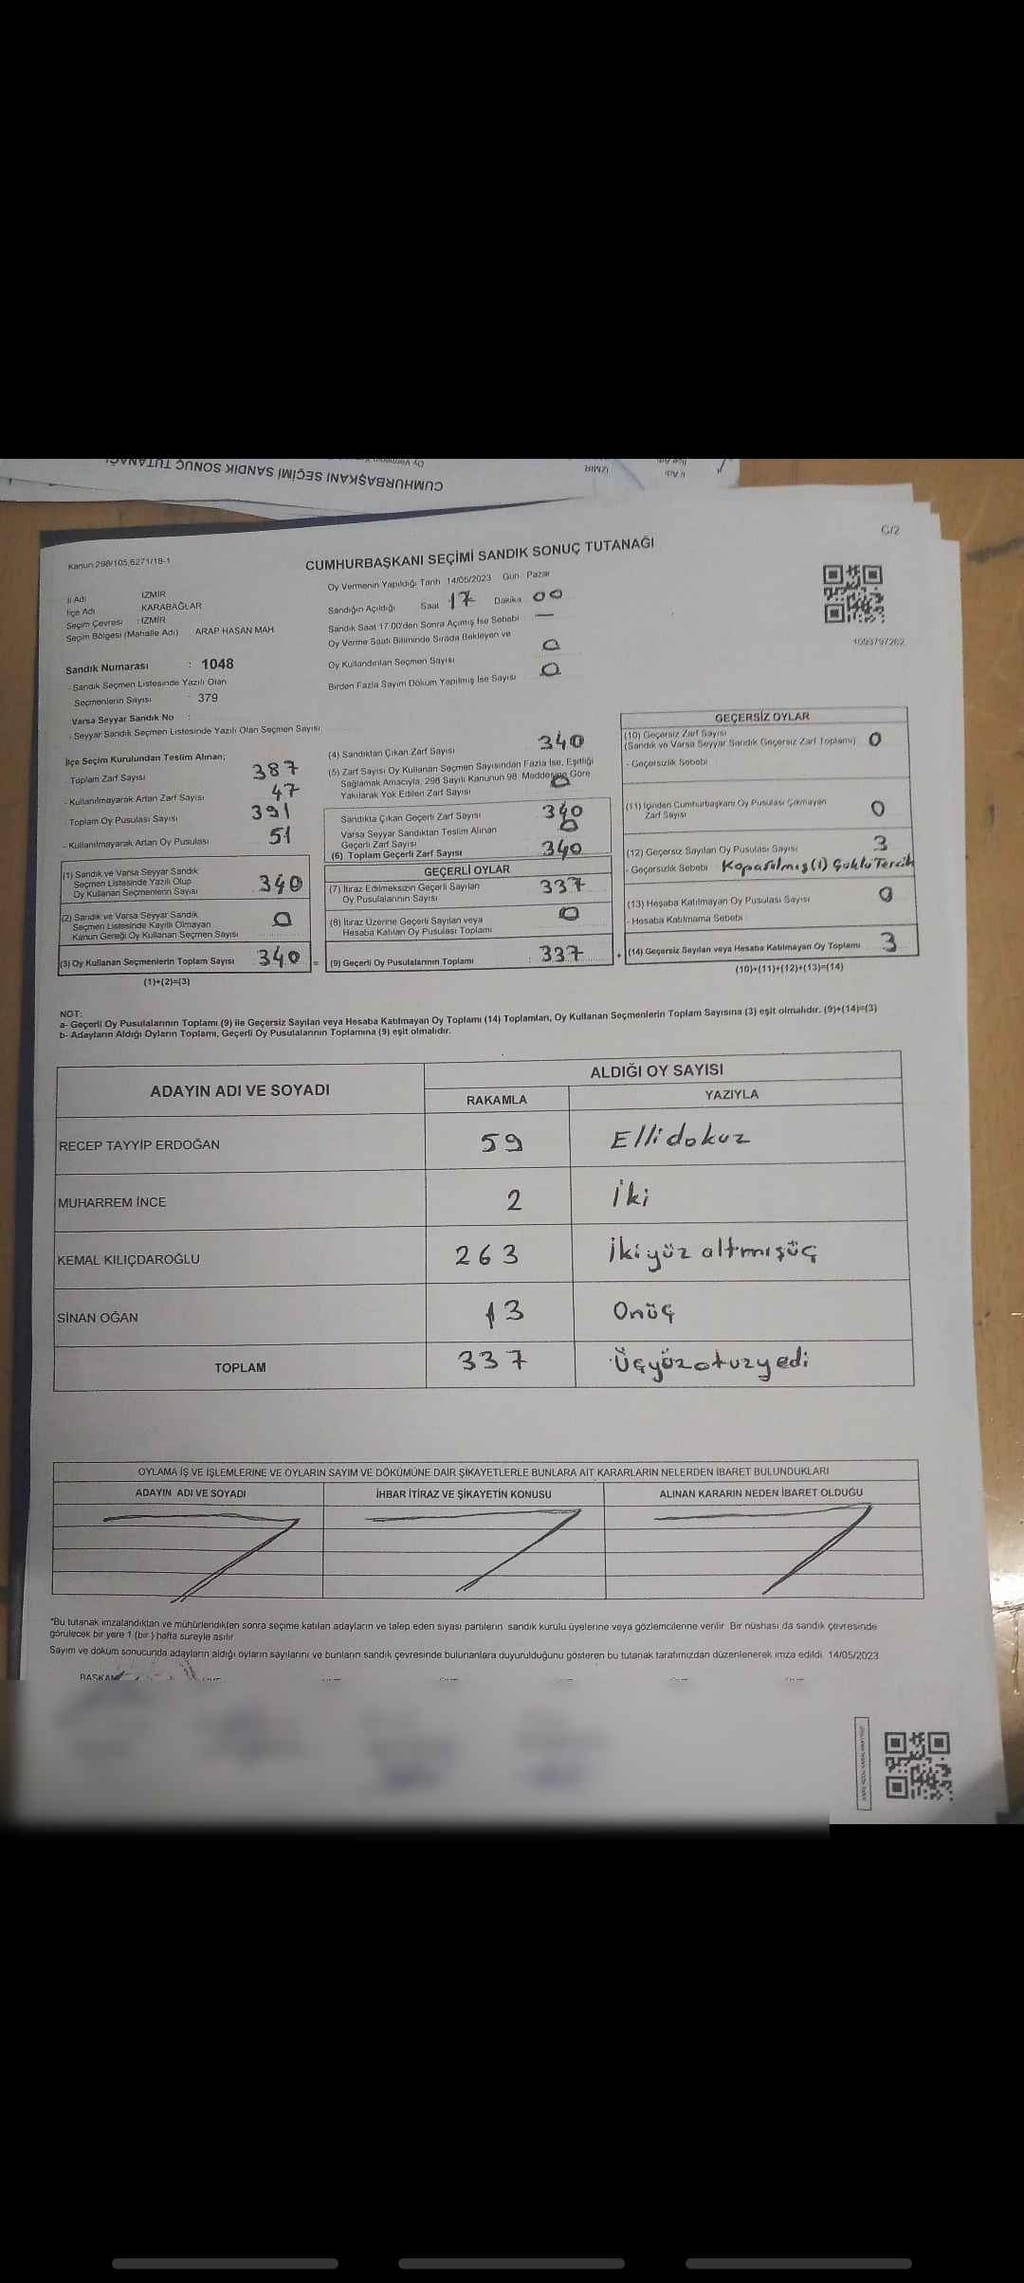 CUMHURBAŞKANI SEÇİMİ SANDIK SONUÇ TUTANAĞI
İZMİR
G/2
Kanun 298/105,6271/18-1
CUMHURBAŞKANI SEÇİMİ SANDIK SONUÇ TUTANAĞI
İl Adı İZMİR
İlçe Adı KARABAĞLAR
Seçim Çevresi : İZMİR
Seçim Bölgesi (Mahalle Adı) ARAP HASAN MAH.
Oy Vermenin Yapıldığı Tarih 14/05/2023 Gün Pazar
Sandığın Açıldığı Saat 17 Dakika 00
Sandık Saat 17.00'den Sonra Açımış İse Sebebi —
Oy Verme Saati Bitiminde Sırada Bekleyen ve
Oy Kullandırılan Seçmen Sayısı 0
Birden Fazla Sayım Döküm Yapılmış İse Sayısı 0
1093797262
Sandık Numarası : 1048
- Sandık Seçmen Listesinde Yazılı Olan
Seçmenlerin Sayısı 379
Varsa Seyyar Sandık No :
- Seyyar Sandık Seçmen Listesinde Yazılı Olan Seçmen Sayısı
İlçe Seçim Kurulundan Teslim Alınan;
Toplam Zarf Sayısı 387
- Kullanılmayarak Artan Zarf Sayısı 47
- Toplam Oy Pusulası Sayısı 391
- Kullanılmayarak Artan Oy Pusulası 51
(1) Sandık ve Varsa Seyyar Sandık
Seçmen Listesinde Yazılı Olup
Oy Kullanan Seçmenlerin Sayısı 340
(2) Sandık ve Varsa Seyyar Sandık
Seçmen Listesinde Kayıtlı Olmayan
Kanun Gereği Oy Kullanan Seçmen Sayısı 0
(3) Oy Kullanan Seçmenlerin Toplam Sayısı 340 =
(1)+(2)=(3)
(4) Sandıktan Çıkan Zarf Sayısı 340
(5) Zarf Sayısı Oy Kullanan Seçmen Sayısından Fazla İse, Eşitliği
Sağlamak Amacıyla, 298 Sayılı Kanunun 98. Maddesine Göre
Yakılarak Yok Edilen Zarf Sayısı 0
Sandıkta Çıkan Geçerli Zarf Sayısı 340
Varsa Seyyar Sandıktan Teslim Alınan
Geçerli Zarf Sayısı 0
(6) Toplam Geçerli Zarf Sayısı 340
GEÇERLİ OYLAR
(7) İtiraz Edilmeksizin Geçerli Sayılan
Oy Pusulalarının Sayısı 337
(8) İtiraz Üzerine Geçerli Sayılan veya
Hesaba Katılan Oy Pusulası Toplamı 0
(9) Geçerli Oy Pusulalarının Toplamı : 337 +
GEÇERSİZ OYLAR
(10) Geçersiz Zarf Sayısı
(Sandık ve Varsa Seyyar Sandık Geçersiz Zarf Toplamı) 0
- Geçersizlik Sebebi
(11) İçinden Cumhurbaşkanı Oy Pusulası Çıkmayan
Zarf Sayısı 0
(12) Geçersiz Sayılan Oy Pusulası Sayısı 3
- Geçersizlik Sebebi Koparılmış(1) Çoklu Tercih
(13) Hesaba Katılmayan Oy Pusulası Sayısı 0
- Hesaba Katılmama Sebebi
(14) Geçersiz Sayılan veya Hesaba Katılmayan Oy Toplamı 3
(10)+(11)+(12)+(13)=(14)
NOT:
a- Geçerli Oy Pusulalarının Toplamı (9) ile Geçersiz Sayılan veya Hesaba Katılmayan Oy Toplamı (14) Toplamları, Oy Kullanan Seçmenlerin Toplam Sayısına (3) eşit olmalıdır. (9)+(14)=(3)
b- Adayların Aldığı Oyların Toplamı, Geçerli Oy Pusulalarının Toplamına (9) eşit olmalıdır.
ADAYIN ADI VE SOYADI ALDIĞI OY SAYISI
RAKAMLA YAZIYLA
RECEP TAYYİP ERDOĞAN 59 Ellidokuz
MUHARREM İNCE 2 İki
KEMAL KILIÇDAROĞLU 263 İkiyüz altmışüç
SİNAN OĞAN 13 Onüç
TOPLAM 337 Üçyüzotuzyedi
OYLAMA İŞ VE İŞLEMLERİNE VE OYLARIN SAYIM VE DÖKÜMÜNE DAİR ŞİKAYETLERLE BUNLARA AİT KARARLARIN NELERDEN İBARET BULUNDUKLARI
ADAYIN ADI VE SOYADI İHBAR İTİRAZ VE ŞİKAYETİN KONUSU ALINAN KARARIN NEDEN İBARET OLDUĞU
*Bu tutanak imzalandıktan ve mühürlendikten sonra seçime katılan adayların ve talep eden siyasi partilerin sandık kurulu üyelerine veya gözlemcilerine verilir. Bir nüshası da sandık çevresinde
görülecek bir yere 1 (bir ) hafta süreyle asılır.
Sayım ve döküm sonucunda adayların aldığı oyların sayılarını ve bunların sandık çevresinde bulunanlara duyurulduğunu gösteren bu tutanak tarafımızdan düzenlenerek imza edildi. 14/05/2023
BAŞKAN